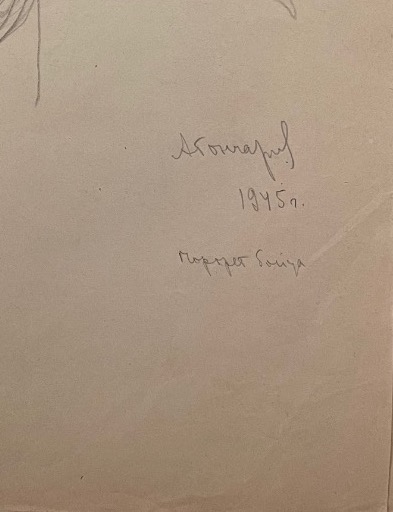 АГончаров
1945г.
портрет бойца